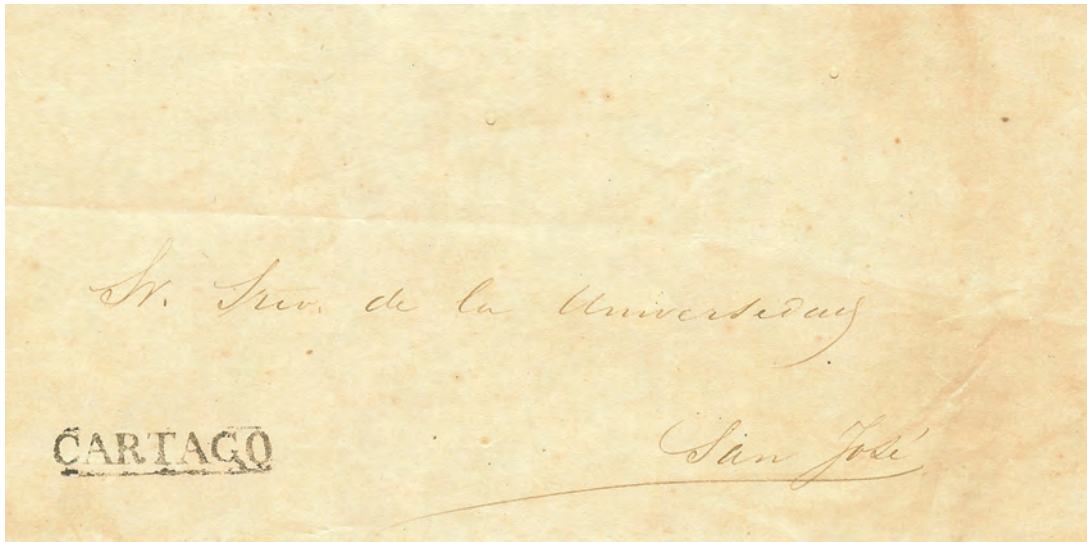 Sr. Srio. de la Universidad
CARTAGO
San José